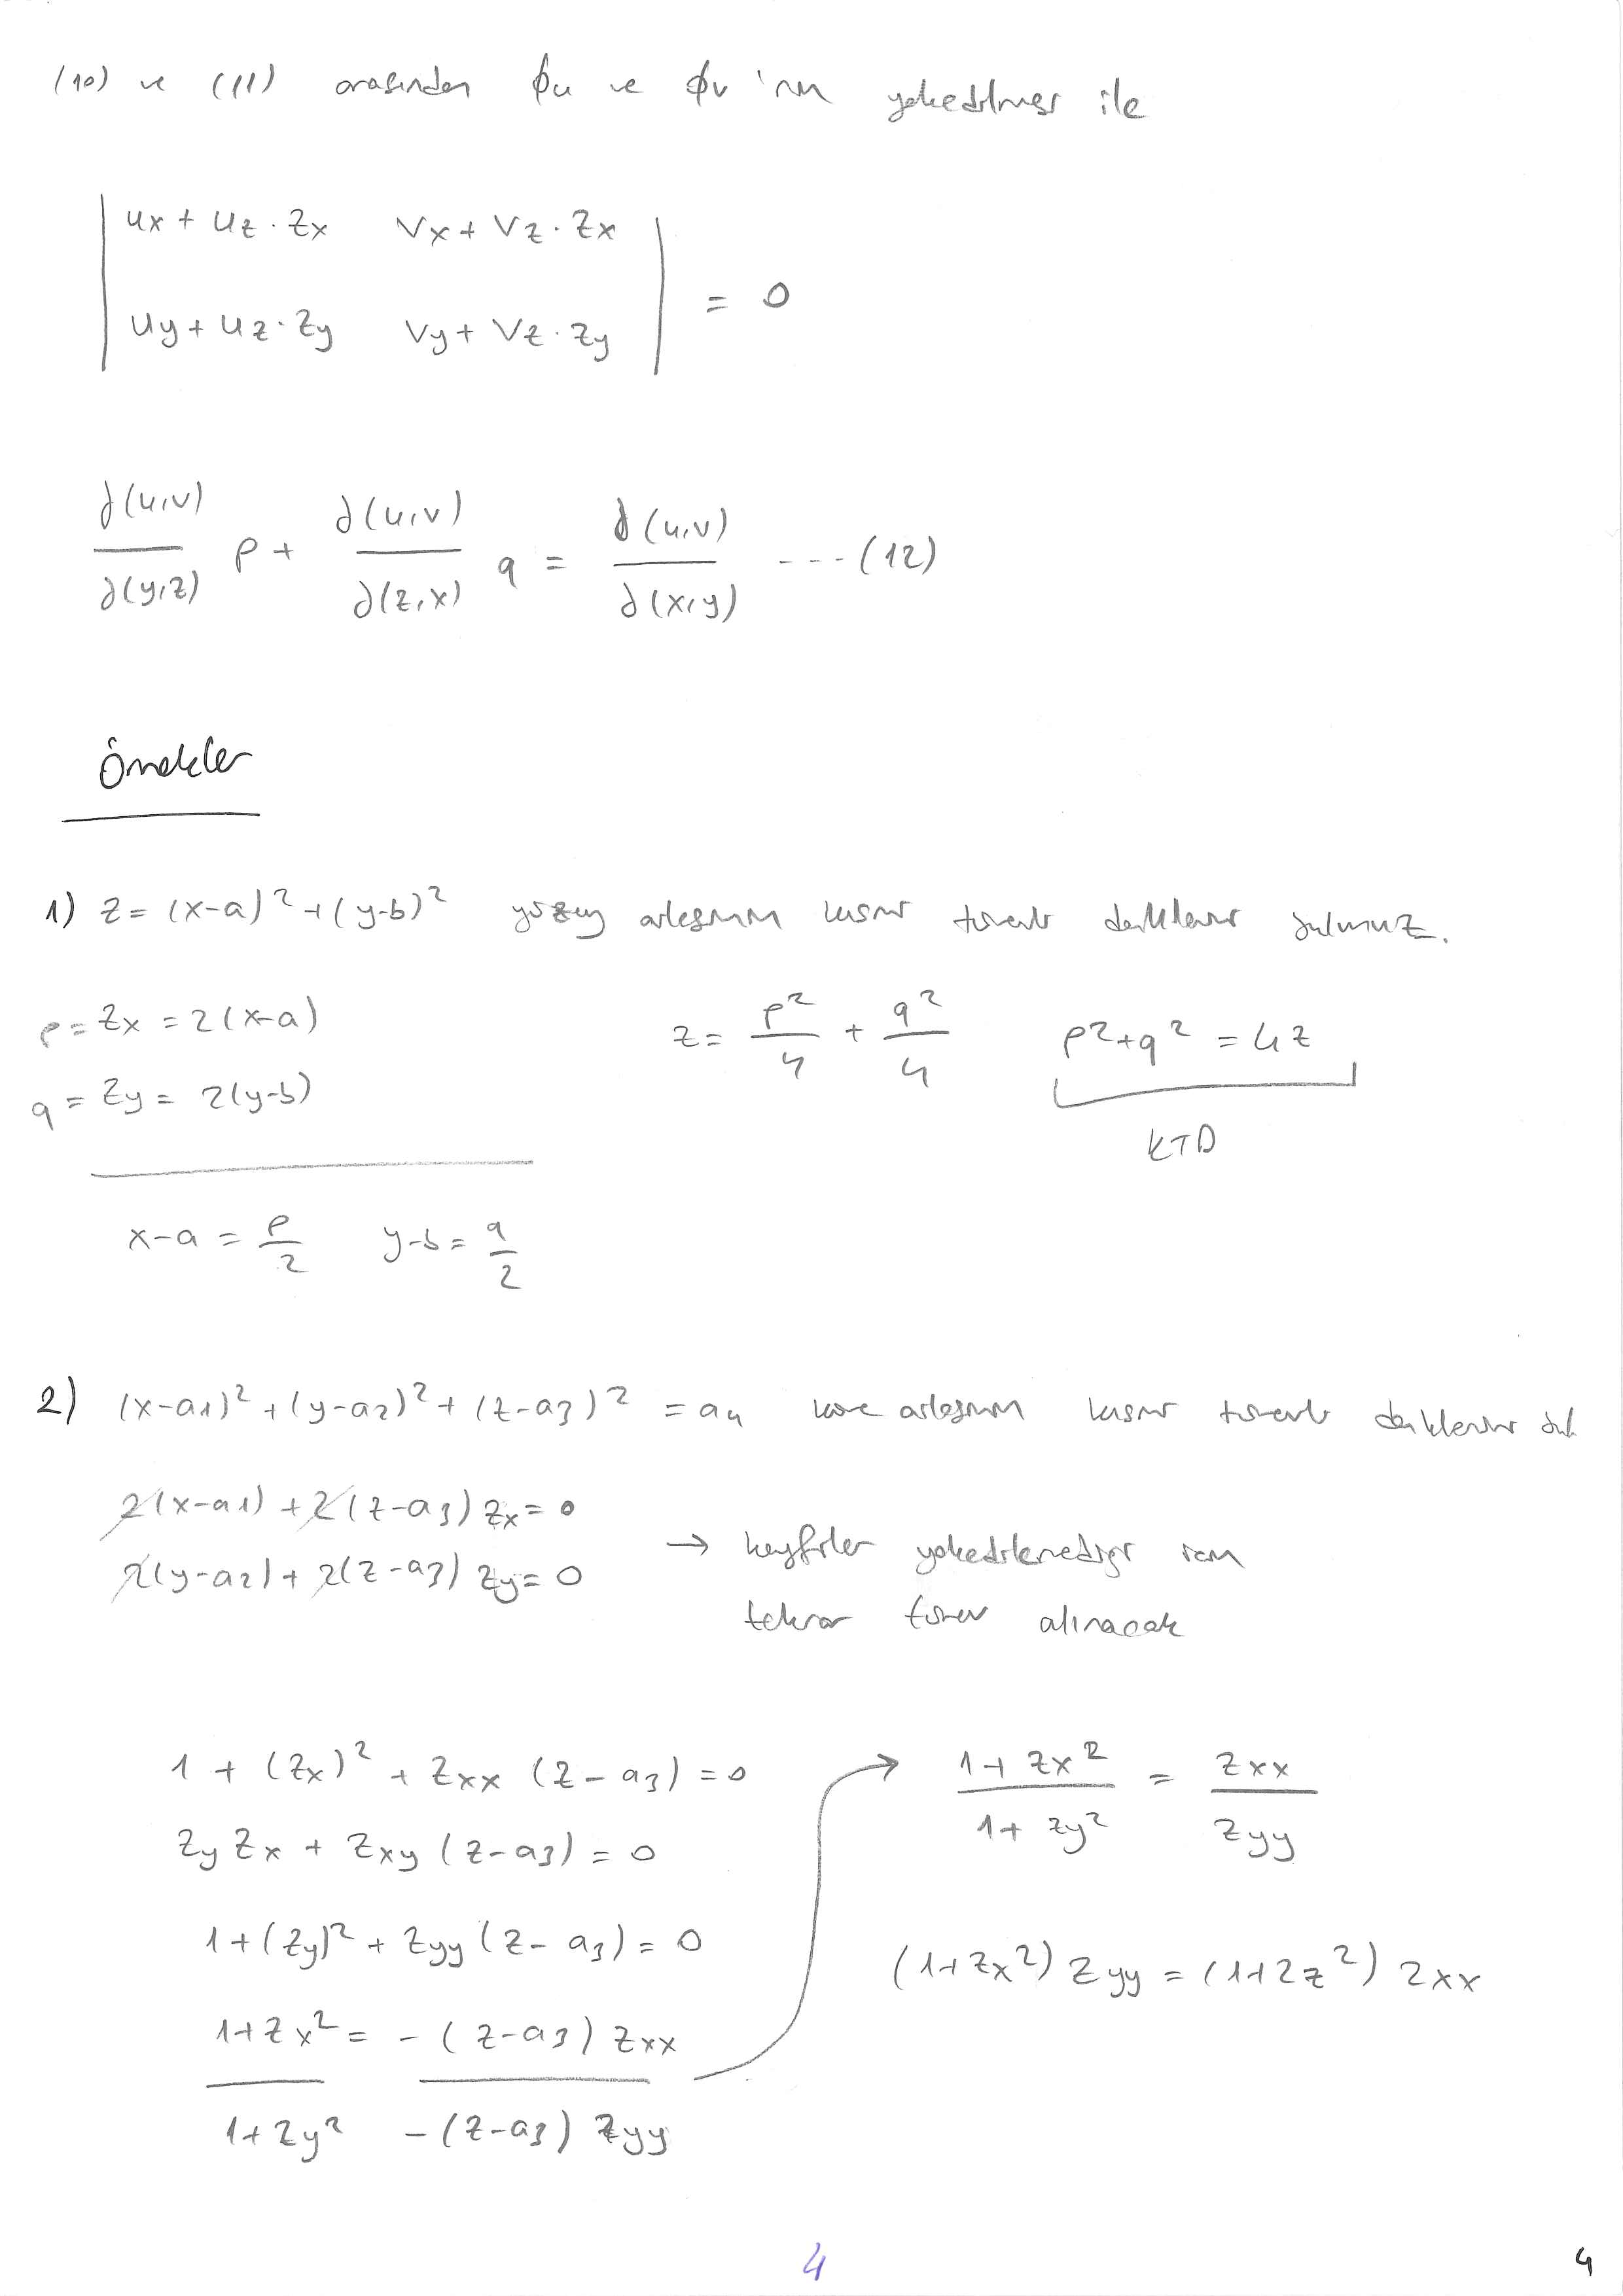 (10) ve (11) arasından ϕu ve ϕv 'nin yokedilmesi ile
| ux + uz · zx   vx + vz · zx |
| uy + uz · zy   vy + vz · zy | = 0
∂(u,v)/∂(y,z) p + ∂(u,v)/∂(z,x) q = ∂(u,v)/∂(x,y) ---(12)
Örnekler
1) z = (x-a)² + (y-b)² yüzey ailesinin kısmi türevli denklemini bulunuz.
p = zx = 2(x-a)
q = zy = 2(y-b)
z = p²/4 + q²/4   p²+q² = 4z
KTD
x-a = p/2   y-b = q/2
2) (x-a1)² + (y-a2)² + (z-a3)² = a4 küre ailesinin kısmi türevli denklemini bul.
2(x-a1) + 2(z-a3) zx = 0
2(y-a2) + 2(z-a3) zy = 0
→ keyfiler yokedilemediği için
tekrar türev alınacak
1 + (zx)² + zxx (z-a3) = 0
zy zx + zxy (z-a3) = 0
1 + (zy)² + zyy (z-a3) = 0
1+zx² / 1+zy² = -(z-a3) zxx / -(z-a3) zyy
→ 1+zx² / 1+zy² = zxx / zyy
(1+zx²) zyy = (1+zz²) zxx
4
4